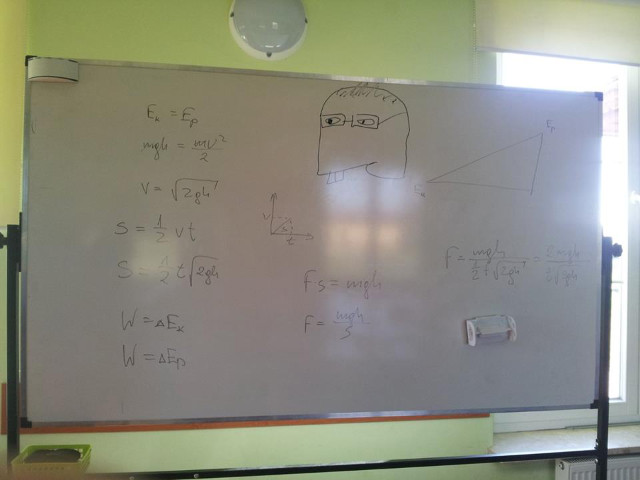 E_k = E_p
mgh = mv²/2
v = √2gh
S = 1/2 vt
S = 1/2 t√2gh
W = ΔE_k
W = ΔE_p
v
s
t
Fs = mgh
F = mgh/s
E_p
E_k
F = mgh / (1/2 t√2gh) = 2mgh / (t√2gh)